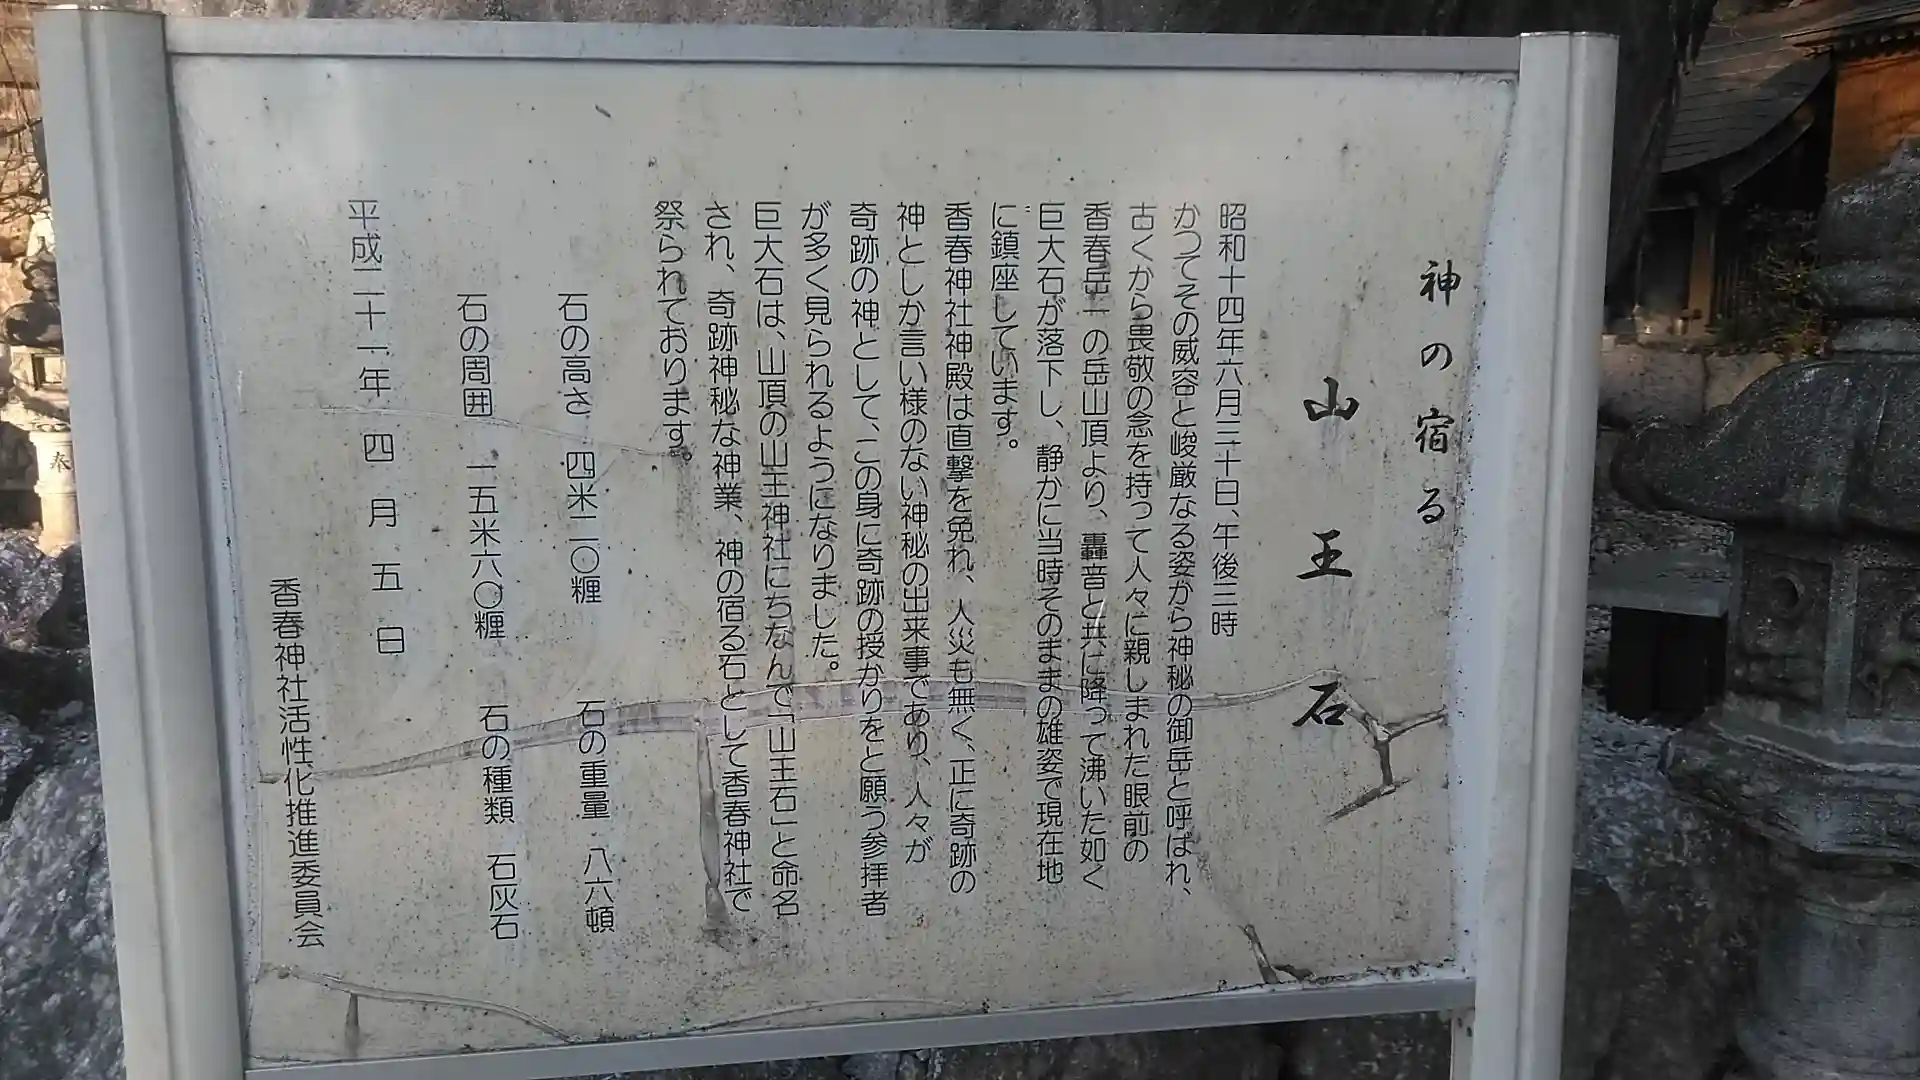 神の宿る
山王石
昭和十四年六月三十日、午後三時
かつてその威容と峻厳なる姿から神秘の御岳と呼ばれ、
古くから畏敬の念を持って人々に親しまれた眼前の
香春岳一の岳山頂より、轟音と共に降って沸いた如く
巨大石が落下し、静かに当時そのままの雄姿で現在地
に鎮座しています。
香春神社神殿は直撃を免れ、人災も無く、正に奇跡の
神としか言い様のない神秘の出来事であり、人々が
奇跡の神として、この身に奇跡の授かりをと願う参拝者
が多く見られるようになりました。
巨大石は、山頂の山王神社にちなんで「山王石」と命名
され、奇跡神秘な神業、神の宿る石として香春神社で
祭られております。
石の高さ 四米二〇糎 石の重量 八六頓
石の周囲 一五米六〇糎 石の種類 石灰石
平成二十一年四月五日
香春神社活性化推進委員会
春